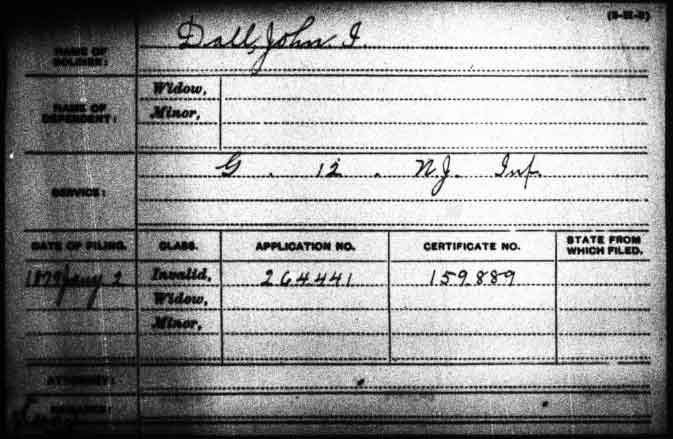 (3-M-3)
NAME OF SOLDIER: Dall, John I.
NAME OF DEPENDENT: Widow,
Minor,
SERVICE: G . 12 . N.J. Inf.
DATE OF FILING. CLASS. APPLICATION NO. CERTIFICATE NO. STATE FROM WHICH FILED.
1879 Invalid, 264441 159889
Widow,
Minor,
ATTORNEY:
REMARKS: